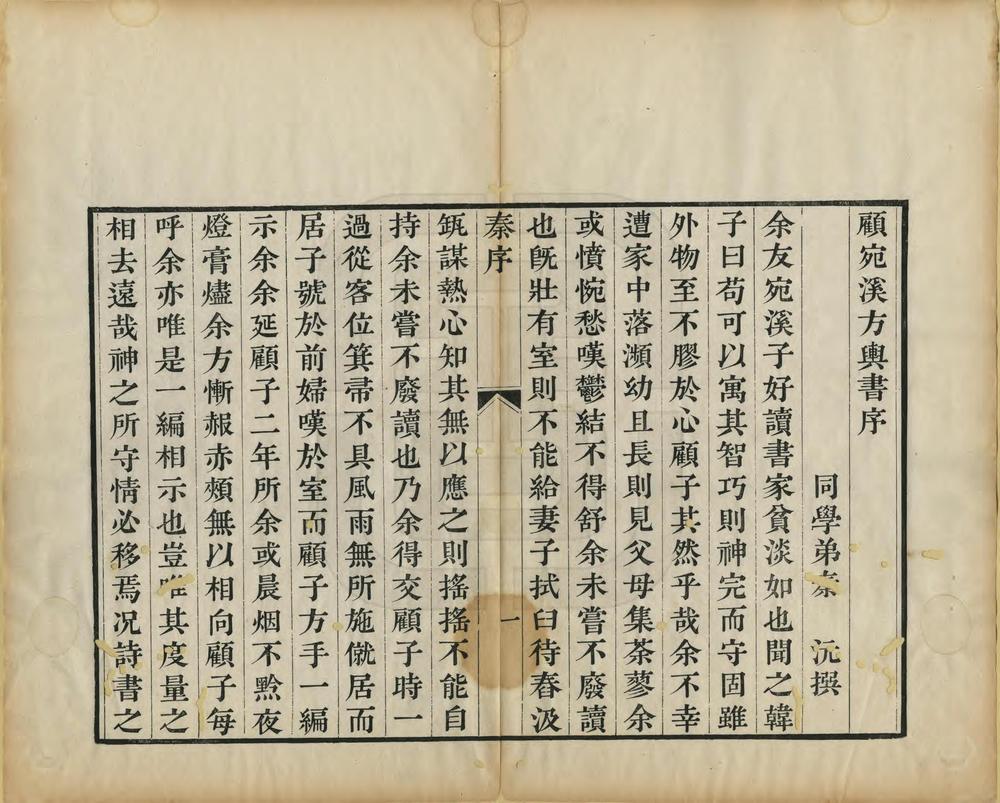 顧宛溪方輿書序
同學弟秦　沅撰
余友宛溪子好讀書家貧淡如也聞之韓
子曰苟可以寓其智巧則神完而守固雖
外物至不膠於心顧子其然乎哉余不幸
遭家中落瀕幼且長則見父母集荼蓼余
或憤惋愁嘆鬱結不得舒余未嘗不廢讀
也旣壯有室則不能給妻子拭臼待舂汲
秦序
一
缾謀熱心知其無以應之則搖搖不能自
持余未嘗不廢讀也乃余得交顧子時一
過從客位箕帚不具風雨無所施僦居而
居子號於前婦嘆於室而顧子方手一編
示余余延顧子二年所余或晨烟不黔夜
燈膏燼余方慚赧赤頰無以相向顧子每
呼余亦唯是一編相示也豈唯其度量之
相去遠哉神之所守情必移焉况詩書之